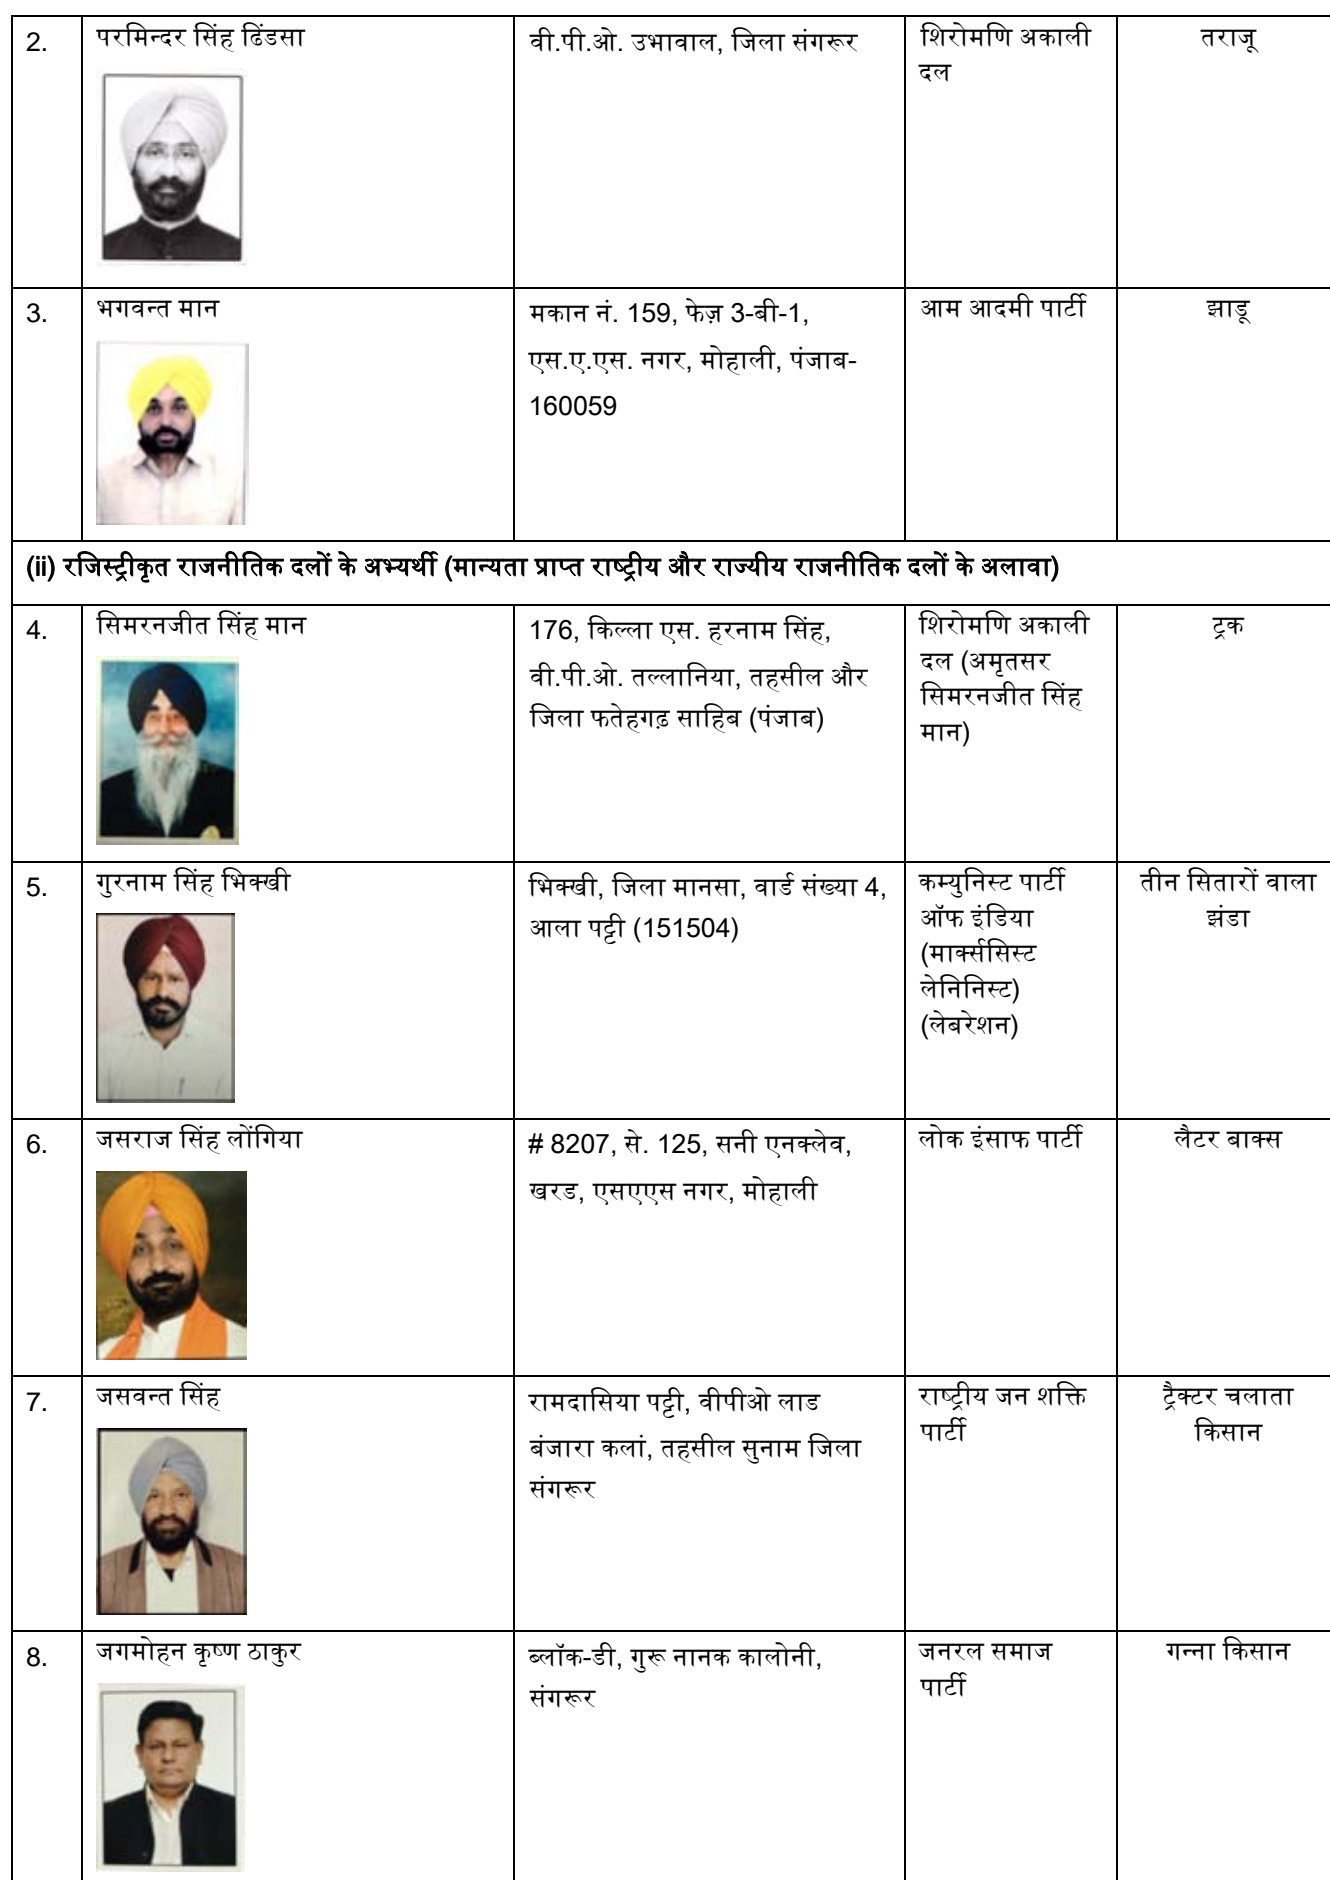 2.
परमिन्दर सिंह ढिंडसा
वी.पी.ओ. उभावाल, जिला संगरूर
शिरोमणि अकाली
दल
तराजू
3.
भगवन्त मान
मकान नं. 159, फेज़ 3-बी-1,
एस.ए.एस. नगर, मोहाली, पंजाब-
160059
आम आदमी पार्टी
झाडू
(ii) रजिस्ट्रीकृत राजनीतिक दलों के अभ्यर्थी (मान्यता प्राप्त राष्ट्रीय और राज्यीय राजनीतिक दलों के अलावा)
4.
सिमरनजीत सिंह मान
176, किल्ला एस. हरनाम सिंह,
वी.पी.ओ. तल्लानिया, तहसील और
जिला फतेहगढ़ साहिब (पंजाब)
शिरोमणि अकाली
दल (अमृतसर
सिमरनजीत सिंह
मान)
ट्रक
5.
गुरनाम सिंह भिक्खी
भिक्खी, जिला मानसा, वार्ड संख्या 4,
आला पट्टी (151504)
कम्युनिस्ट पार्टी
ऑफ इंडिया
(मार्क्ससिस्ट
लेनिनिस्ट)
(लेबरेशन)
तीन सितारों वाला
झंडा
6.
जसराज सिंह लोंगिया
# 8207, से. 125, सनी एनक्लेव,
खरड, एसएएस नगर, मोहाली
लोक इंसाफ पार्टी
लैटर बाक्स
7.
जसवन्त सिंह
रामदासिया पट्टी, वीपीओ लाड
बंजारा कलां, तहसील सुनाम जिला
संगरूर
राष्ट्रीय जन शक्ति
पार्टी
ट्रैक्टर चलाता
किसान
8.
जगमोहन कृष्ण ठाकुर
ब्लॉक-डी, गुरू नानक कालोनी,
संगरूर
जनरल समाज
पार्टी
गन्ना किसान